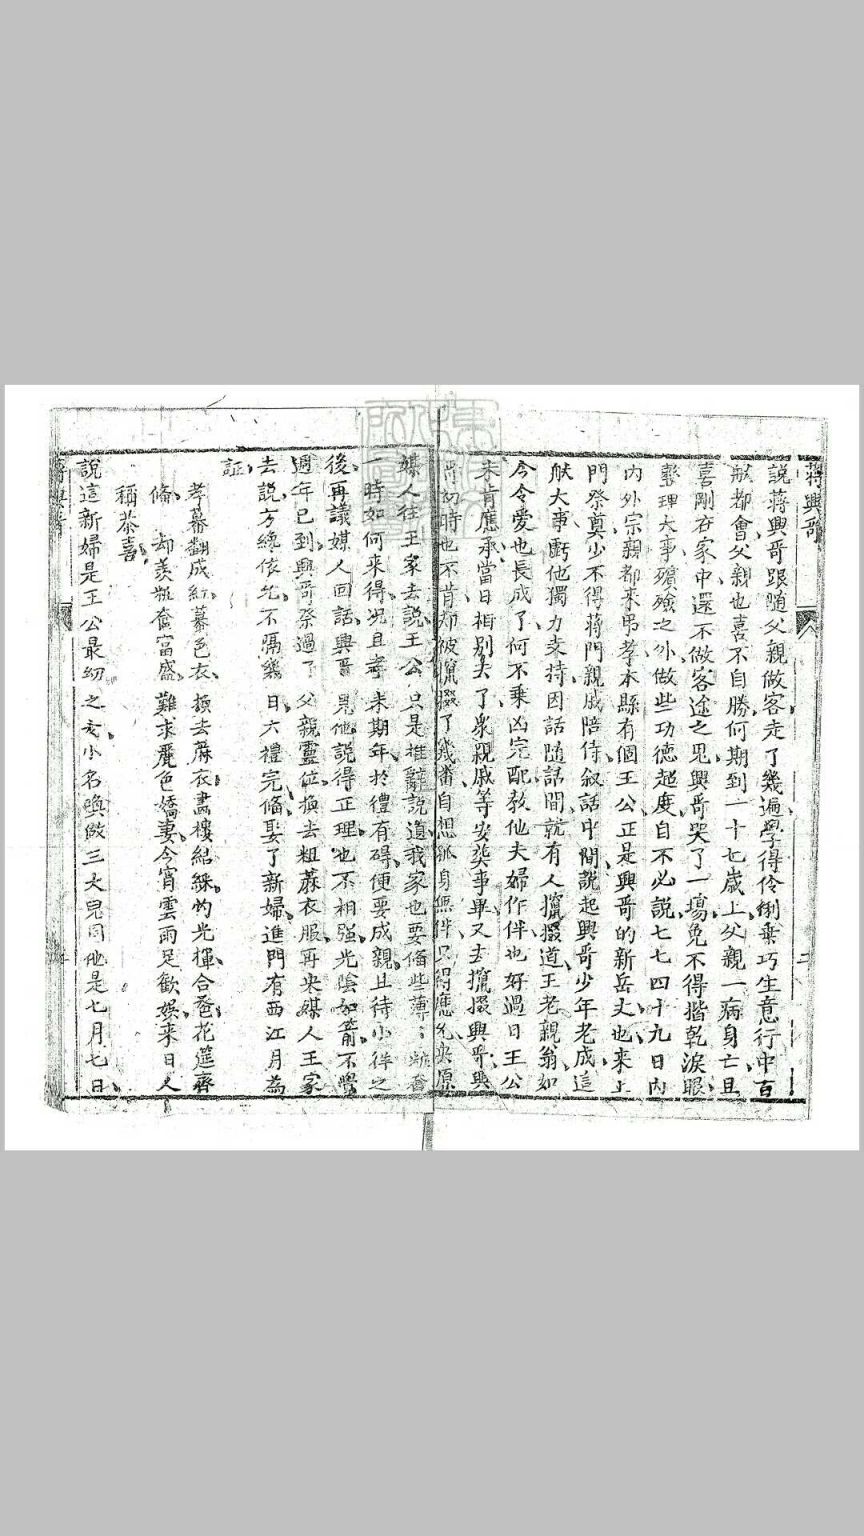 蔣興哥
二
說蔣興哥跟隨父親做客走了幾遍學得伶俐乗巧生意行中百
般都會父親也喜不自勝何期到一十七歲上父親一病身亡且
喜剛在家中還不做客途之鬼興哥哭了一場免不得揩乾淚眼
整理大事殯殮之外做些功德超度自不必說七七四十九日內
內外宗親都来吊孝本縣有個王公正是興哥的新岳丈也来上
門祭奠少不得蔣門親戚陪侍叙話中間說起興哥少年老成這
般大事虧他獨力支持因話隨話間就有人攛掇道王老親翁如
今令愛也長成了何不乗凶完配教他夫婦作伴也好過日王公
未肯應承當日相別去了衆親戚等安葬事畢又去攛掇興哥興
哥初時也不肯却被攛掇了幾番自想孤身無伴只得應允央原
媒人往王家去說王公只是推辭說道我家也要俻些薄薄粧奩
一時如何来得况且孝未期年於禮有碍便要成親且待小祥之
後再議媒人回話興哥見他說得正理也不相強光陰如箭不覺
週年已到興哥祭過了父親靈位換去粗蔴衣服再央媒人王家
去說方纔依允不隔幾日六禮完俻娶了新婦進門有西江月為
証
孝幕翻成紅幕色衣換去蔴衣畫樓結綵灼光揮合巹花筵齊
俻却羡粧奩富盛難求麗色嬌妻今宵雲雨足歡娛来日人
稱恭喜
說這新婦是王公最幼之女小名喚做三大兒因他是七月七日